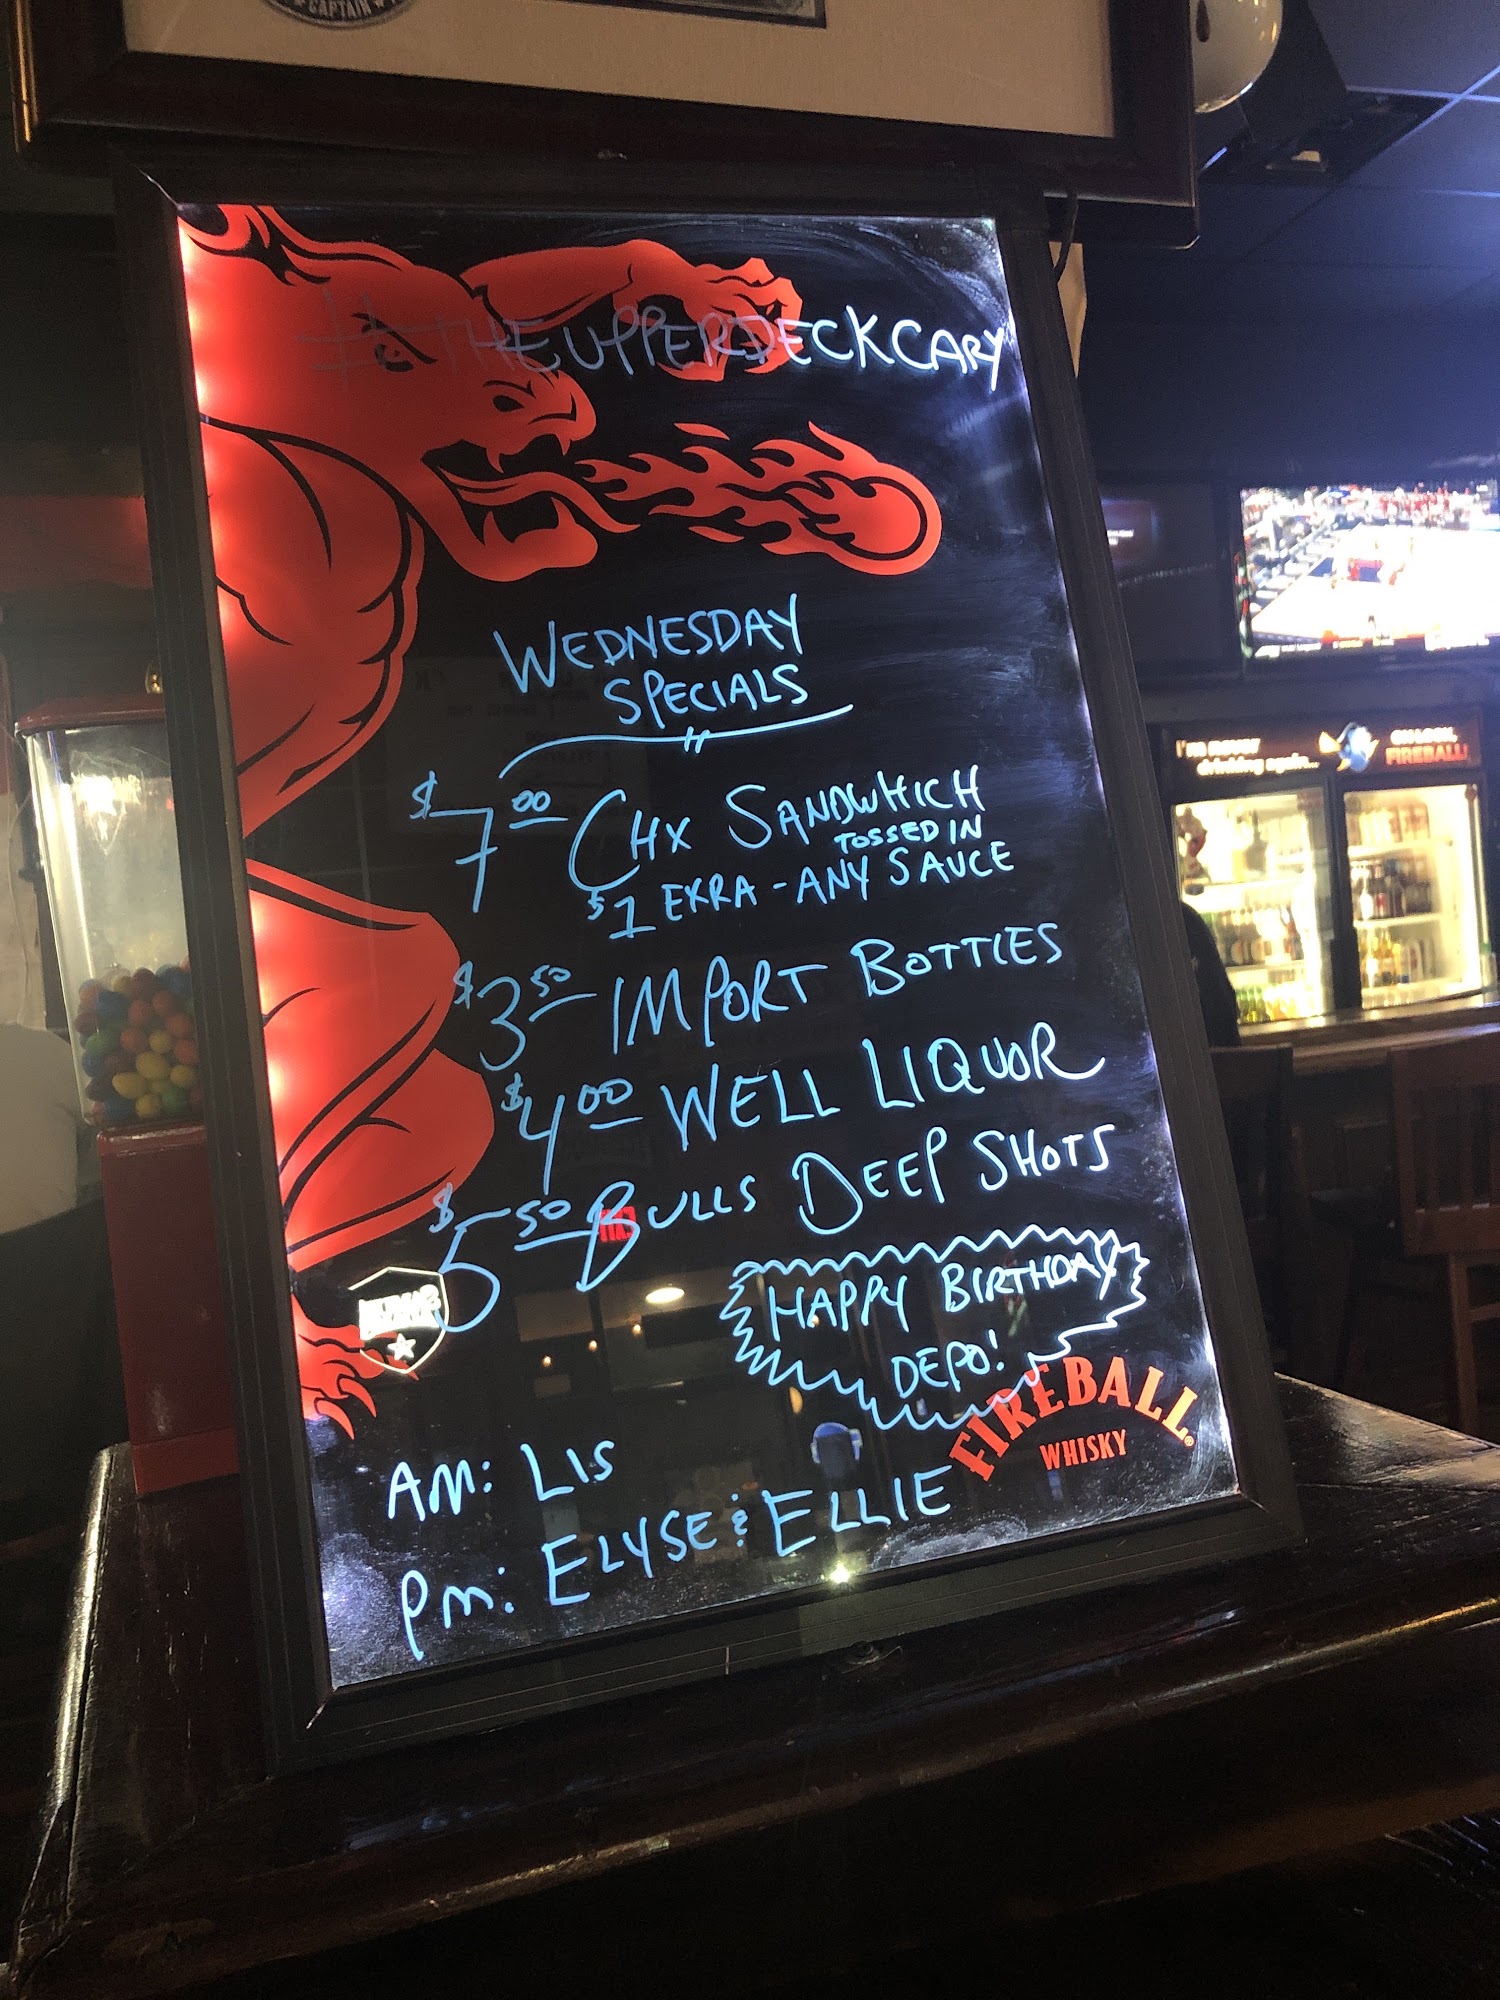 CAPTAIN
#THEUPPERDECKCARY
WEDNESDAY
SPECIALS
$7.00 CHX SANDWHICH
TOSSED IN
$1 EXRA - ANY SAUCE
$3.50 IMPORT BOTTLES
$4.00 WELL LIQUOR
$5.50 BULLS DEEP SHOTS
HAPPY BIRTHDAY
DEPO!
FIREBALL®
WHISKY
AM: LIS
PM: ELYSE & ELLIE
I'm never
drinking again...
OH LOOK,
FIREBALL!